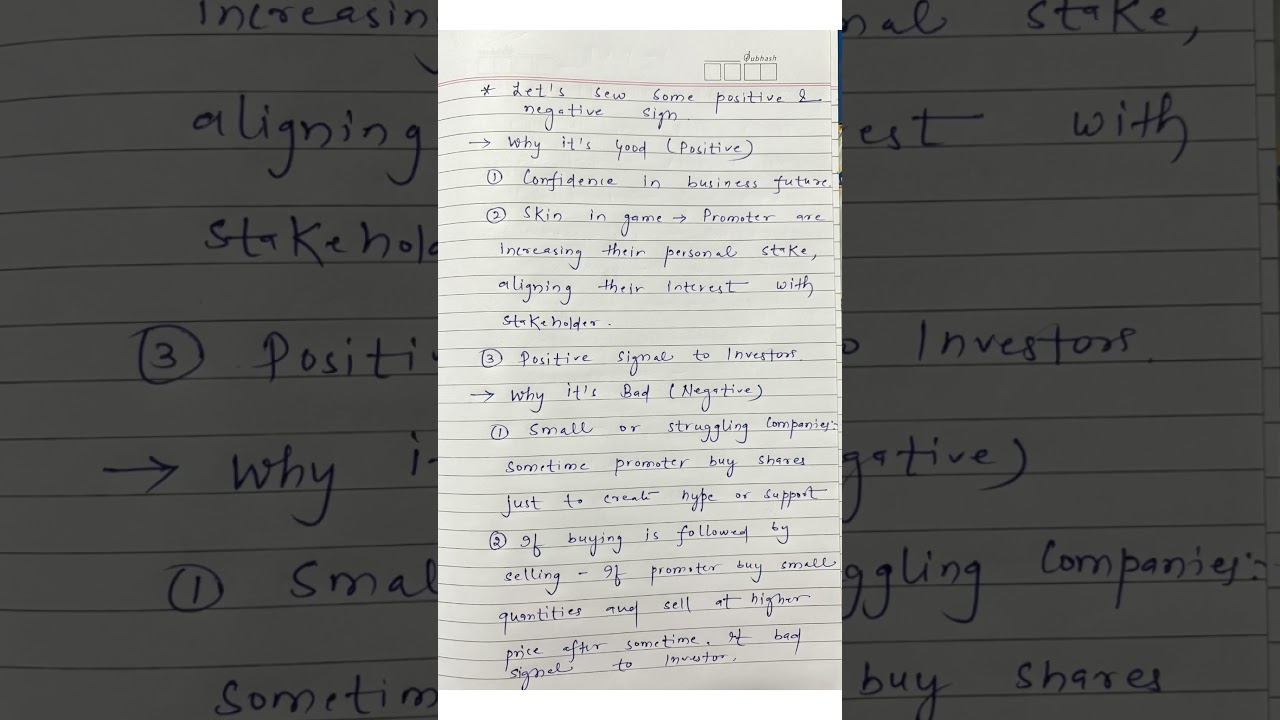 Subhash
* Let's sew some positive &
negative sign.
→ Why it's Good (Positive)
① Confidence in business future
② Skin in game → Promoter are
increasing their personal stake,
aligning their interest with
stakeholder.
③ Positive signal to Investors.
→ Why it's Bad (Negative)
① Small or struggling Companies:-
sometime promoter buy shares
just to create hype or support
② If buying is followed by
selling - If promoter buy small
quantities and sell at higher
price after sometime. It bad
signal to Investor.